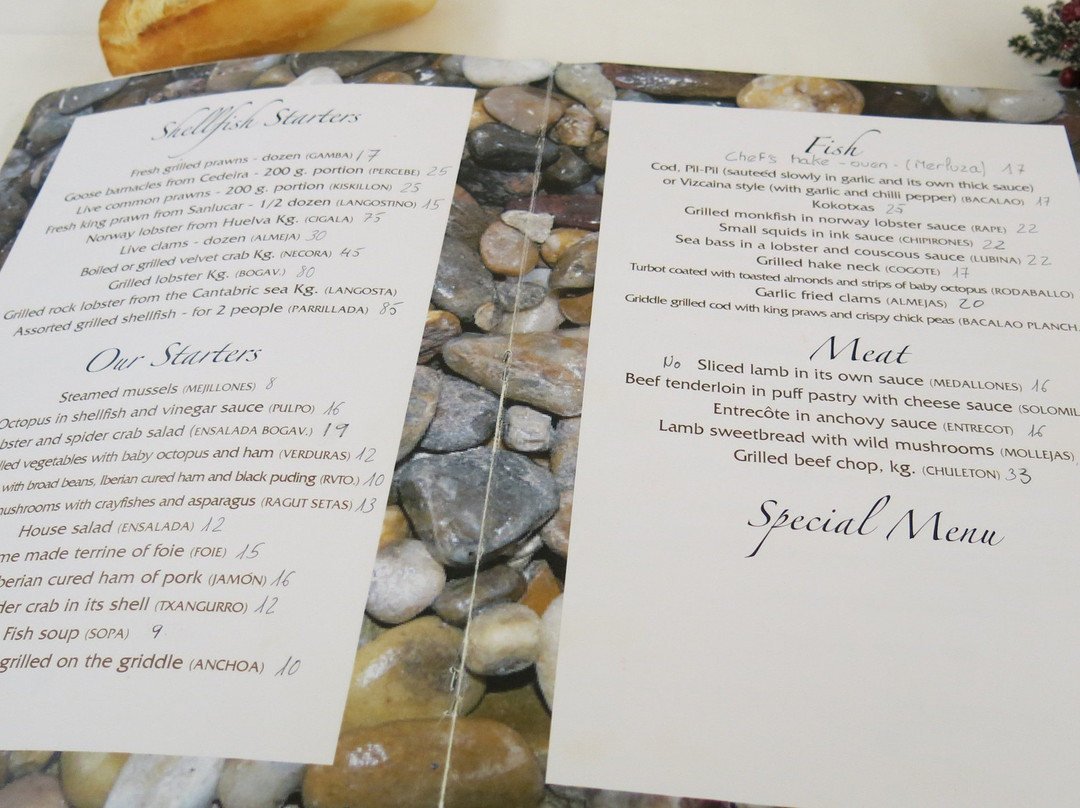 Shellfish Starters
Fresh grilled prawns - dozen (GAMBA) 17
Goose barnacles from Cedeira - 200 g. portion (PERCEBE) 25
Live common prawns - 200 g. portion (KISKILLON) 25
Fresh king prawn from Sanlucar - 1/2 dozen (LANGOSTINO) 15
Norway lobster from Huelva Kg. (CIGALA) 75
Live clams - dozen (ALMEJA) 30
Boiled or grilled velvet crab Kg. (NECORA) 45
Grilled lobster Kg. (BOGAV.) 80
Grilled rock lobster from the Cantabric sea Kg. (LANGOSTA)
Assorted grilled shellfish - for 2 people (PARRILLADA) 85
Our Starters
Steamed mussels (MEJILLONES) 8
Octopus in shellfish and vinegar sauce (PULPO) 16
bster and spider crab salad (ENSALADA BOGAV.) 19
lled vegetables with baby octopus and ham (VERDURAS) 12
with broad beans, Iberian cured ham and black puding (RVTO.) 10
mushrooms with crayfishes and asparagus (RAGUT SETAS) 13
House salad (ENSALADA) 12
me made terrine of foie (FOIE) 15
berian cured ham of pork (JAMÓN) 16
der crab in its shell (TXANGURRO) 12
Fish soup (SOPA) 9
grilled on the griddle (ANCHOA) 10
Fish
Chef's hake - oven - (Merluza) 17
Cod, Pil-Pil (sauteéd slowly in garlic and its own thick sauce)
or Vizcaina style (with garlic and chilli pepper) (BACALAO) 17
Kokotxas 25
Grilled monkfish in norway lobster sauce (RAPE) 22
Small squids in ink sauce (CHIPIRONES) 22
Sea bass in a lobster and couscous sauce (LUBINA) 22
Grilled hake neck (COGOTE) 17
Turbot coated with toasted almonds and strips of baby octopus (RODABALLO)
Garlic fried clams (ALMEJAS) 20
Griddle grilled cod with king praws and crispy chick peas (BACALAO PLANCH.
Meat
No Sliced lamb in its own sauce (MEDALLONES) 16
Beef tenderloin in puff pastry with cheese sauce (SOLOMIL
Entrecôte in anchovy sauce (ENTRECOT) 16
Lamb sweetbread with wild mushrooms (MOLLEJAS)
Grilled beef chop, kg. (CHULETON) 33
Special Menu